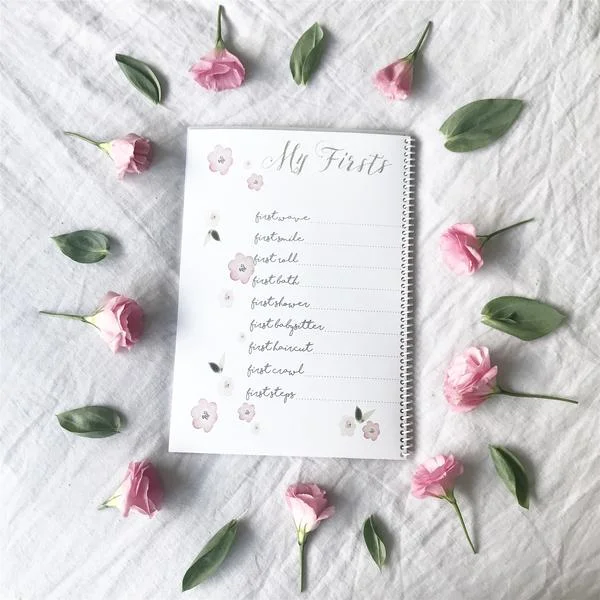 My Firsts
first wave
first smile
first roll
first bath
first shower
first babysitter
first haircut
first crawl
first steps